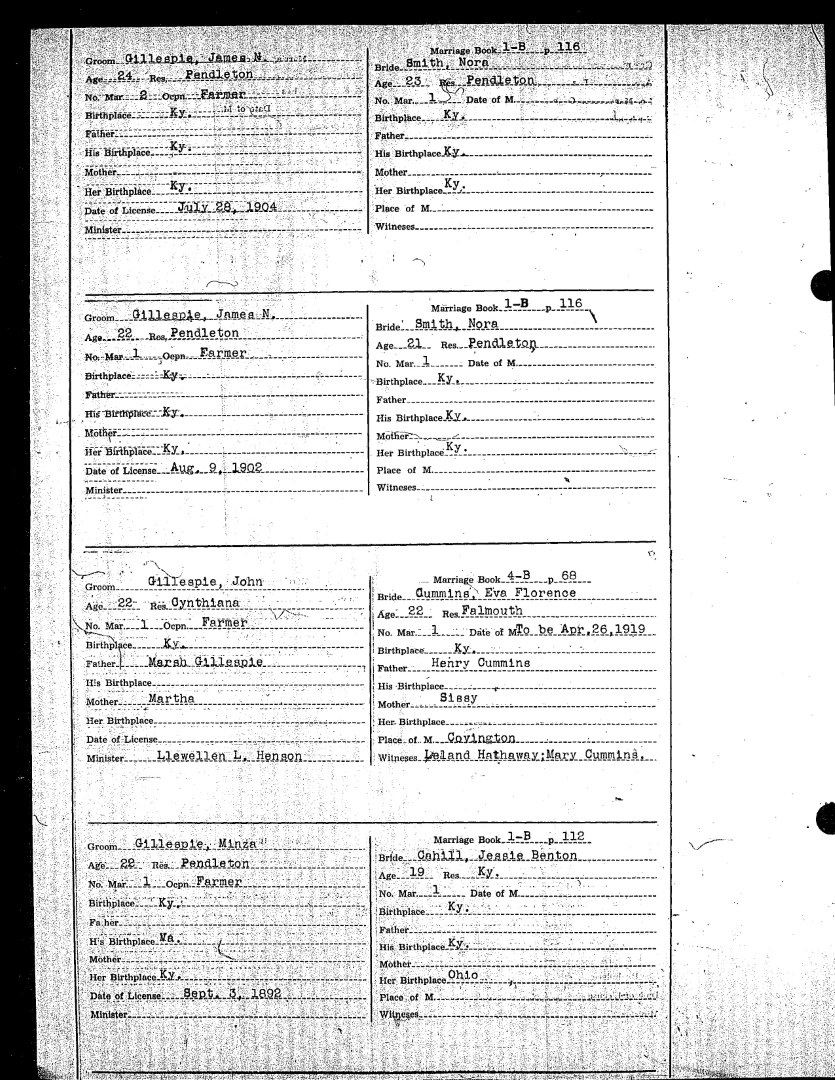 Groom Gillespie, James N.
Age 24 Res. Pendleton
No. Mar. 2 Ocpn. Farmer
Birthplace Ky.
Father
His Birthplace Ky.
Mother
Her Birthplace Ky.
Date of License July 28, 1904
Minister
Marriage Book 1-B p. 116
Bride Smith, Nora
Age 23 Res. Pendleton
No. Mar. 1 Date of M.
Birthplace Ky.
Father
His Birthplace Ky.
Mother
Her Birthplace Ky.
Place of M.
Witneses
Groom Gillespie, James N.
Age 22 Res. Pendleton
No. Mar. 1 Ocpn. Farmer
Birthplace Ky.
Father
His Birthplace Ky.
Mother
Her Birthplace Ky.
Date of License Aug. 9, 1902
Minister
Marriage Book 1-B p. 116
Bride Smith, Nora
Age 21 Res. Pendleton
No. Mar. 1 Date of M.
Birthplace Ky.
Father
His Birthplace Ky.
Mother
Her Birthplace Ky.
Place of M.
Witneses
Groom Gillespie, John
Age 22 Res. Cynthiana
No. Mar. 1 Ocpn. Farmer
Birthplace Ky.
Father Marsh Gillespie
His Birthplace
Mother Martha
Her Birthplace
Date of License
Minister Llewellen L. Henson
Marriage Book 4-B p. 68
Bride Cummins, Eva Florence
Age 22 Res. Falmouth
No. Mar. 1 Date of M To be Apr.26,1919
Birthplace Ky.
Father Henry Cummins
His Birthplace
Mother Sissy
Her Birthplace
Place of M. Covington
Witneses Leland Hathaway;Mary Cummins.
Groom Gillespie, Minza
Age 22 Res. Pendleton
No. Mar. 1 Ocpn. Farmer
Birthplace Ky.
Father
His Birthplace Va.
Mother
Her Birthplace Ky.
Date of License Sept. 3, 1892
Minister
Marriage Book 1-B p. 112
Bride Cahill, Jessie Benton
Age 19 Res. Ky.
No. Mar. 1 Date of M.
Birthplace Ky.
Father
His Birthplace Ky.
Mother
Her Birthplace Ohio
Place of M.
Witneses